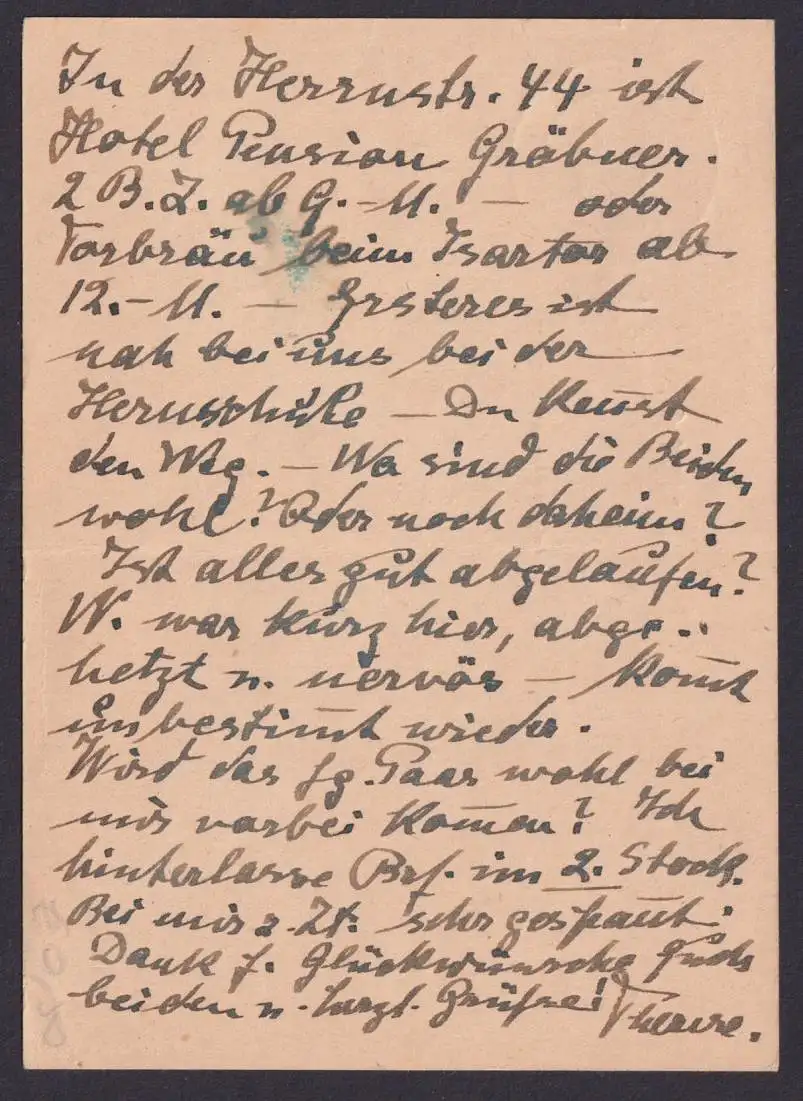 In der Herrnstr. 44 ist
Hotel Pension Gräbner.
2 B. Z. ab 9.-M. — oder
Torbräu beim Isartor ab
12.-M. — Ersteres ist
nah bei uns bei der
Hernschule — Du kennst
den Weg. — Wo sind die Beiden
wohl? Oder noch daheim?
Ist alles gut abgelaufen?
W. war kurz hier, abge-
hetzt u. nervös — kom̄t
unbestim̄t wieder.
Wird das jg. Paar wohl bei
mir vorbei kom̄en? Ich
hinterlasse Brf. im 2. Stock.
Bei mir z. Zt. sehr gespan̄t.
Dank f. Glückwünsche Euch
beiden u. herzl. Grüsse! Therese.